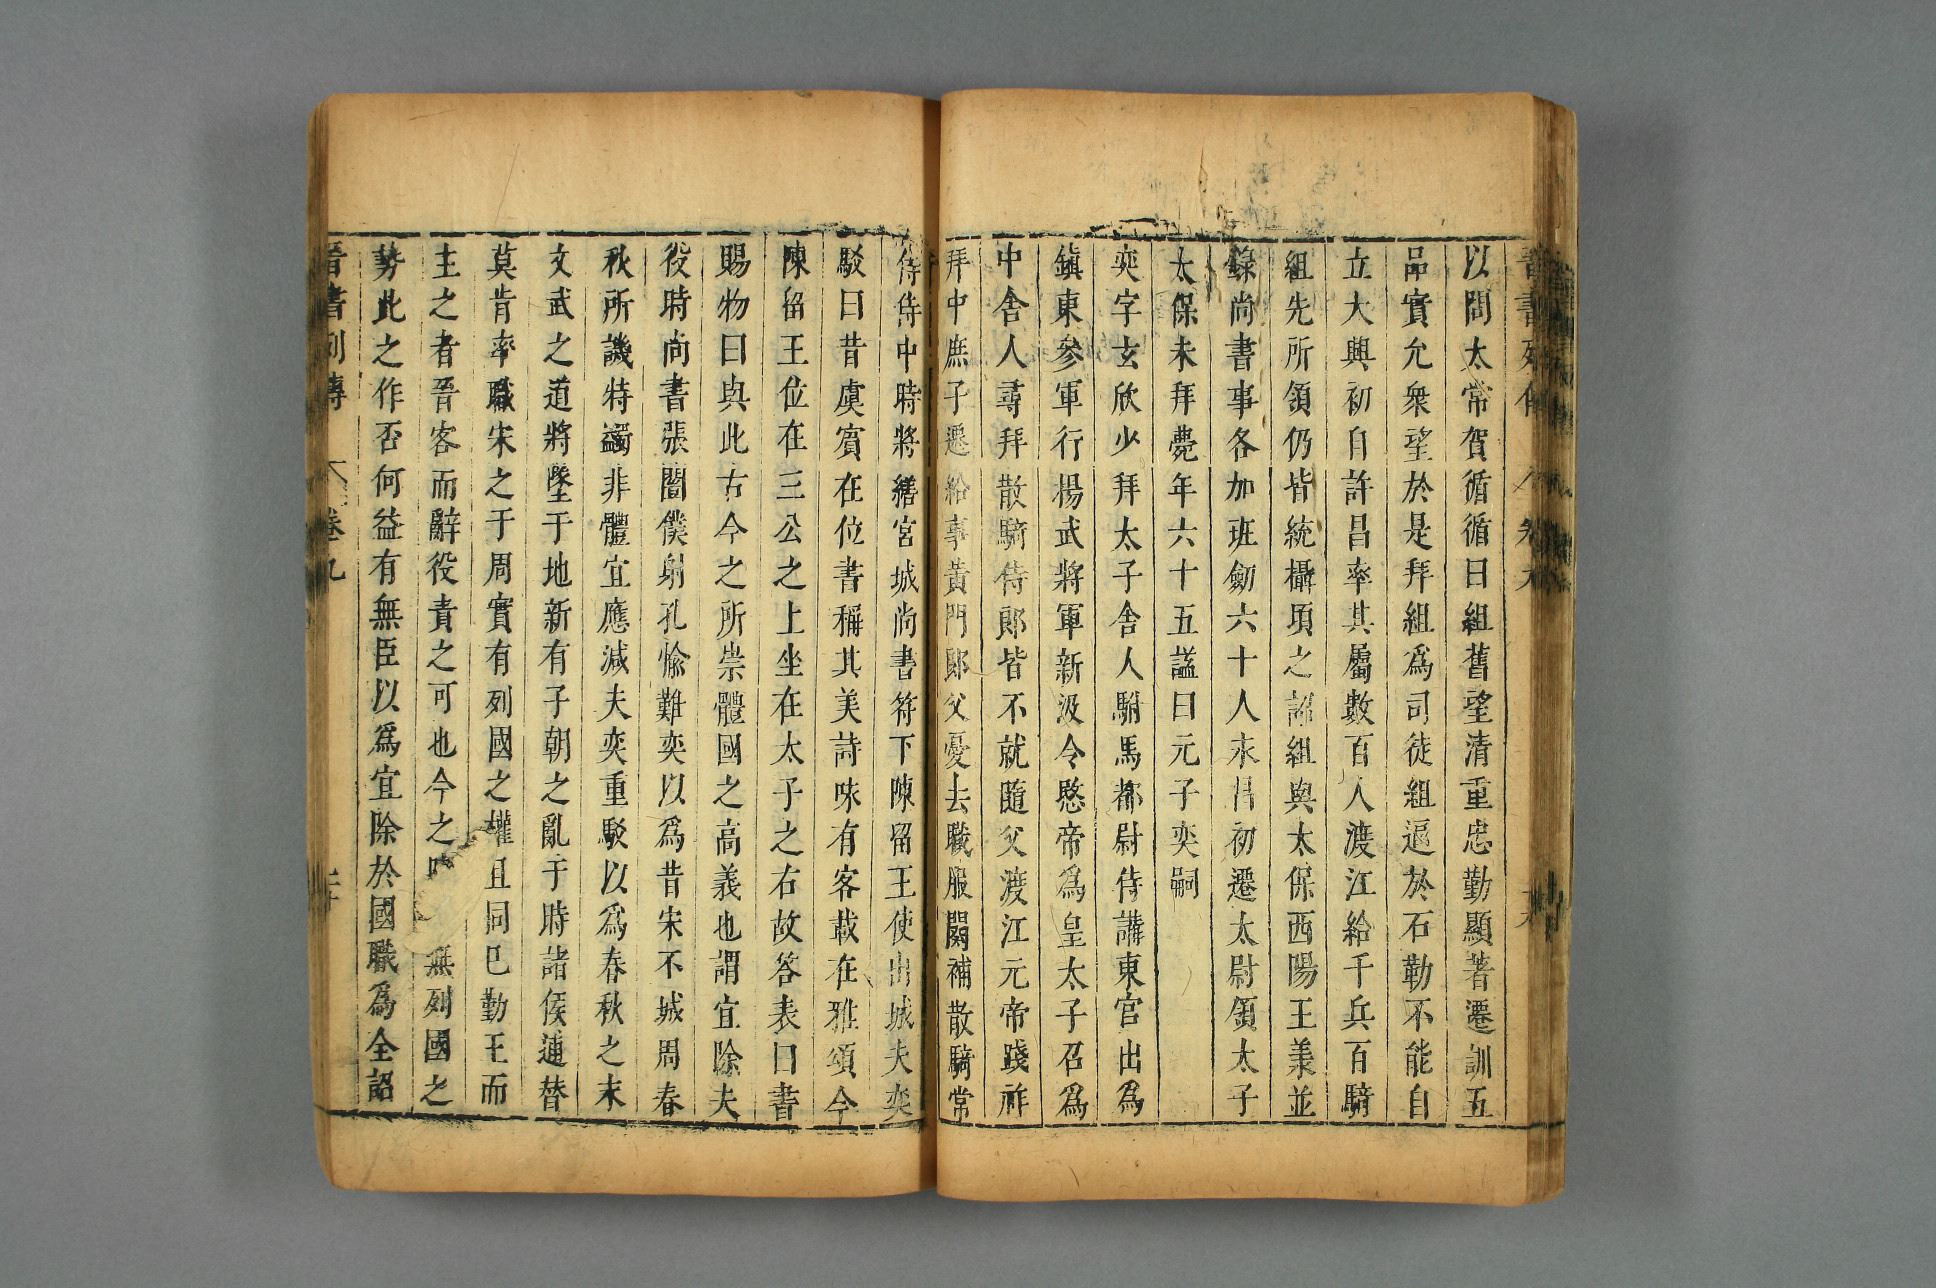 以問太常賀循循曰組舊望清重忠勤顯著遷訓五
品實允衆望於是拜組爲司徒組逼於石勒不能自
立大興初自許昌率其屬數百人渡江給千兵百騎
組先所領仍皆統攝頃之詔組與太保西陽王羕並
錄尚書事各加班劒六十人永昌初遷太尉領太子
太保未拜薨年六十五謚曰元子奕嗣
奕字玄欣少拜太子舍人駙馬都尉侍講東宮出爲
鎮東參軍行楊武將軍新汲令愍帝爲皇太子召爲
中舍人尋拜散騎侍郎皆不就隨父渡江元帝踐祚
拜中庶子遷給事黃門郎父憂去職服闋補散騎常
侍侍中時將繕宮城尚書符下陳留王使出城夫奕
駁曰昔虞賔在位書稱其美詩味有客載在雅頌今
陳留王位在三公之上坐在太子之右故答表曰書
賜物曰與此古今之所崇體國之高義也謂宜除夫
役時尚書張闓僕射孔愉難奕以爲昔宋不城周春
秋所譏特蠲非體宜應減夫奕重駁以爲春秋之末
文武之道將墜于地新有子朝之亂于時諸侯逋替
莫肯率職宋之于周實有列國之權且同巳勤王而
主之者晉客而辭役責之可也今之 無列國之
勢此之作否何益有無臣以爲宜除於國職爲全詔
晉書列傳 卷九